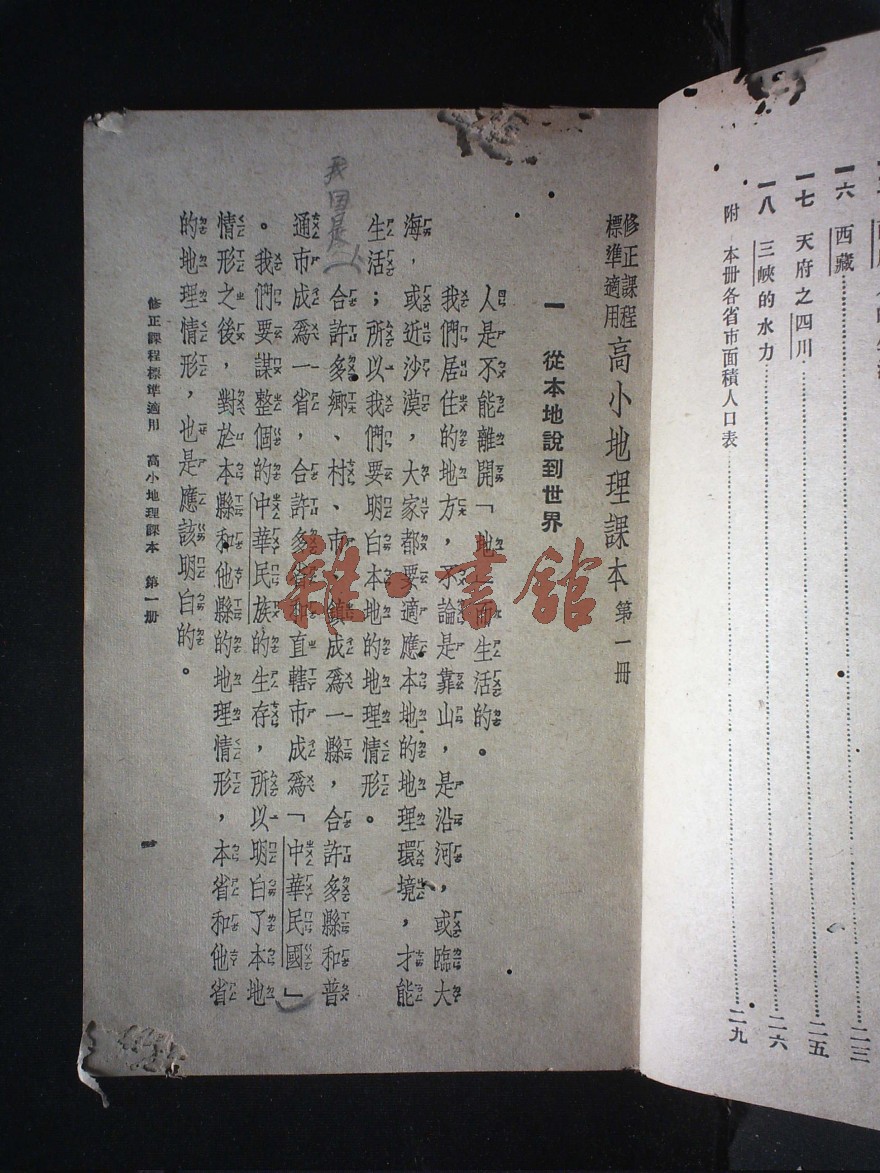 一六 西藏…………二三
一七 天府之四川…………二五
一八 三峽的水力…………二六
附 本册各省市面積人口表…………二九
修正課程標準適用 高小地理課本 第一冊
一 從本地說到世界
人是不能離開「地」而生活的。
我們居住的地方，不論是靠山，是沿河，或臨大
海，或近沙漠，大家都要適應本地的地理環境，才能
生活；所以我們要明白本地的地理情形。
合許多鄉、村、市、鎮成爲一縣，合許多縣和普
通市成爲一省，合許多省和直轄市成爲「中華民國」
。我們要謀整個的中華民族的生存，所以明白了本地
情形之後，對於本縣和他縣的地理情形，本省和他省
的地理情形，也是應該明白的。
修正課程標準適用 高小地理課本 第一册
一
我国是
雜·書館